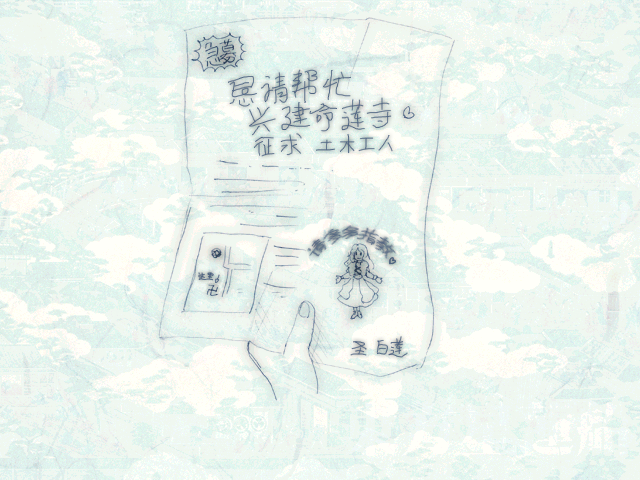 急募
恳请帮忙
兴建命莲寺
征求 土木工人
请多多指教
这里
卍
圣白莲